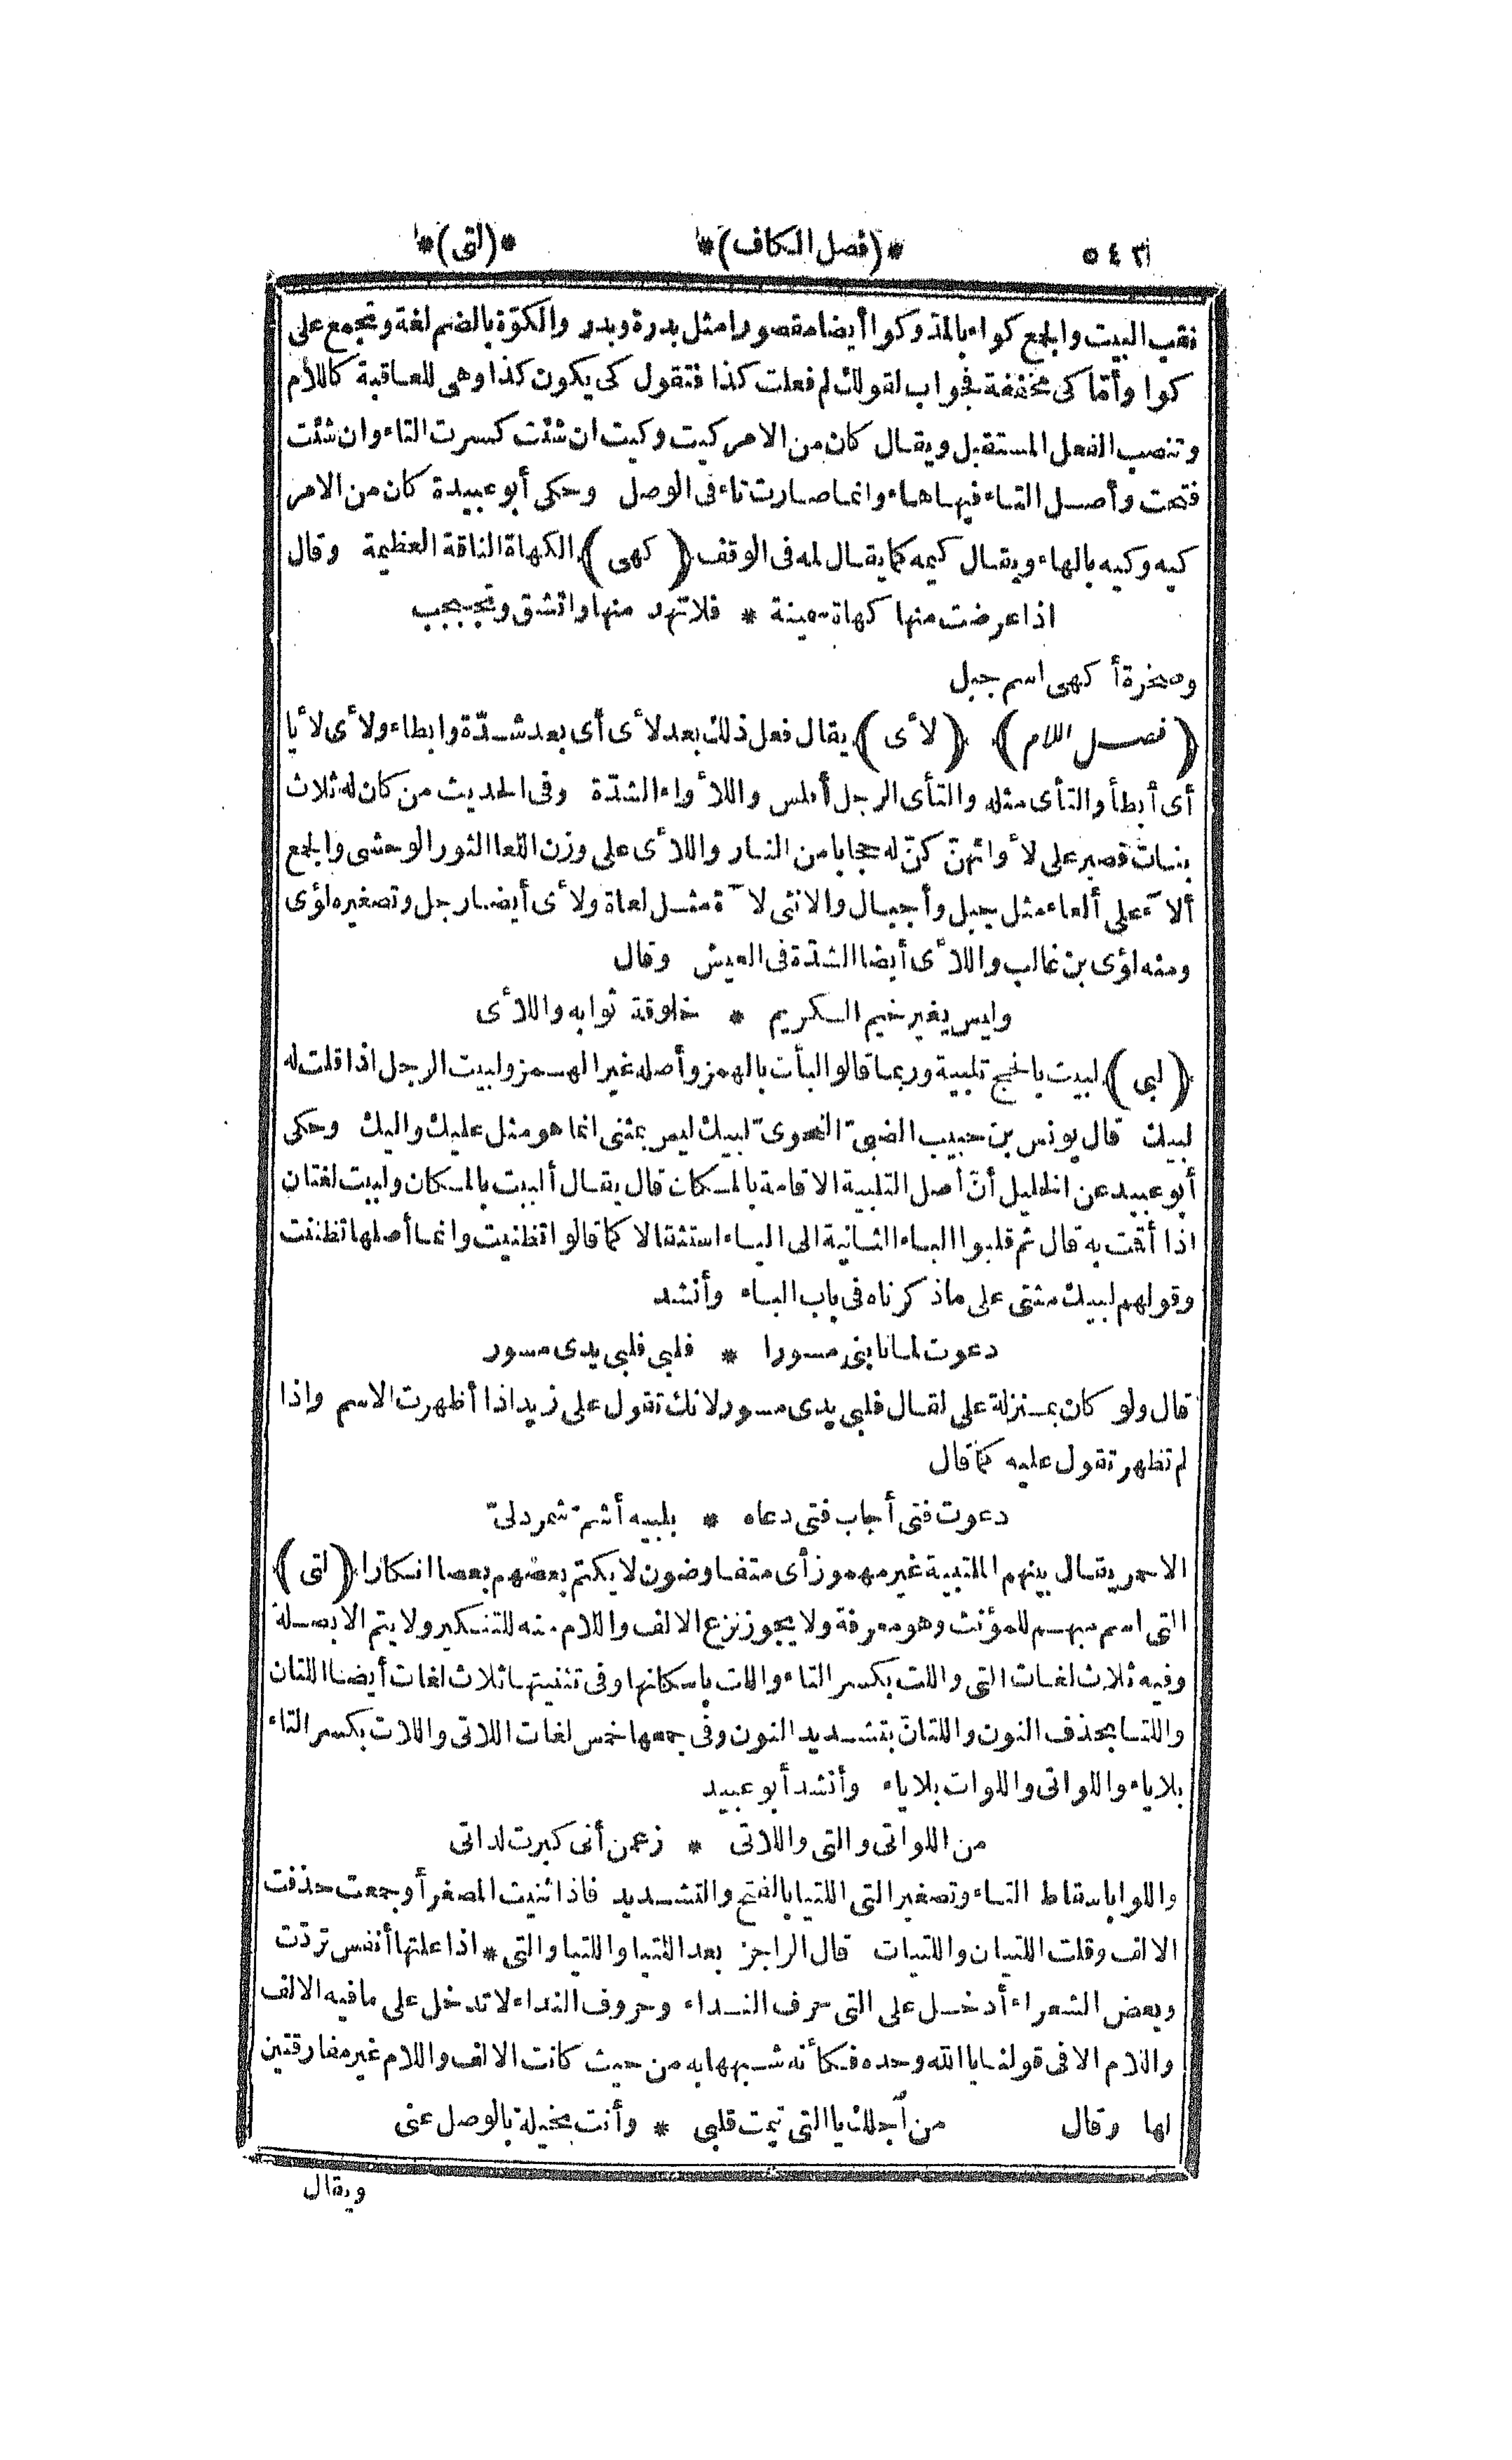 ٥٤٢ *(فصل الكاف)* *(لتى)*
نقب البيت والجمع كواء بالمدّ وكوا أيضا مقصورا مثل بدرة وبدر والكوّة بالضم لغة وتجمع على
كوا وأمّا كى مخففة فجواب لقولك لم فعلت كذا فتقول كى يكون كذا وهى للعاقبة كاللام
وتنصب الفعل المستقبل ويقال كان من الامر كيت وكيت ان شئت كسرت التاء وان شئت
فتحت وأصل التاء فيها هاء وانما صارت تاء فى الوصل وحكى أبو عبيدة كان من الامر
كيه وكيه بالهاء ويقال كيمه كما يقال لمه فى الوقف (كهى) الكهاة الناقة العظيمة وقال
اذا عرضت منها كهاة سمينة * فلا تهد منها واتشق وتجبجب
وصخرة أكهى اسم جبل
(فصل اللام) (لأى) يقال فعل ذلك بعد لأى أى بعد شدّة وابطاء ولأى لأيا
أى أبطأ والتأى مثله والتأى الرجل أفلس واللأواء الشدّة وفى الحديث من كان له ثلاث
بنات فصبر على لأوائهنّ كنّ له حجابا من النار واللأى على وزن اللعا الثور الوحشى والجمع
ألآء على ألعاء مثل جبل وأجبال والانثى لآة مثل لعاة ولأى أيضا رجل وتصغيره لؤى
ومنه لؤى بن غالب واللأى أيضا الشدّة فى العيش وقال
وليس يغير خيم الكريم * خلوقة ثوابه واللأى
(لبى) لبيت بالحج تلبية وربما قالوا لبأت بالهمز وأصله غير الهمز ولبيت الرجل اذا قلت له
لبيك قال يونس بن حبيب الضبىّ النحوىّ لبيك ليس بمثنى انما هو مثل عليك واليك وحكى
أبو عبيد عن الخليل أنّ أصل التلبية الاقامة بالمكان قال يقال ألبيت بالمكان ولبيت لغتان
اذا أقمت به قال ثم قلبوا الباء الثانية الى الياء استثقالا كما قالوا تظنيت وانما أصلها تظننت
وقولهم لبيك مثنى على ما ذكرناه فى باب الباء وأنشد
دعوت لما نابنى مسورا * فلبى فلبى يدى مسور
قال ولو كان بمنزلة على لقال فلبى يدى مسور لانك تقول على زيد اذا أظهرت الاسم واذا
لم تظهر تقول عليه كما قال
دعوت فتى أجاب فتى دعاه * بلبيه أشمّ شمردلىّ
الاحمر يقال بينهم الملتبية غير مهموز أى متفاوضون لا يكتم بعضهم بعضا انكارا (لتى)
التى اسم مبهم للمؤنث وهو معرفة ولا يجوز نزع الالف واللام منه للتنكير ولا يتم الا بصلة
وفيه ثلاث لغات التى واللت بكسر التاء واللت باسكانها وفى تثنيتها ثلاث لغات أيضا اللتان
واللتا بحذف النون واللتانّ بتشديد النون وفى جمعها خمس لغات اللاتى واللات بكسر التاء
بلا ياء واللواتى واللوات بلا ياء وأنشد أبو عبيد
من اللواتى والتى واللاتى * زعمن أنى كبرت لداتى
واللوا باسقاط التاء وتصغير التى اللتيا بالفتح والتشديد فاذا ثنيت المصغر أو جمعت حذفت
الالف وقلت اللتيان واللتيات قال الراجز بعد اللتيا واللتيا والتى * اذا علتها أنفس تردّت
وبعض الشعراء أدخل على التى حرف النداء وحروف النداء لا تدخل على ما فيه الالف
واللام الا فى قولنا يا الله وحده فكأنه شبهها به من حيث كانت الالف واللام غير مفارقتين
لها وقال من أجلك يا التى تيمت قلبى * وأنت بخيلة بالوصل عنى
ويقال